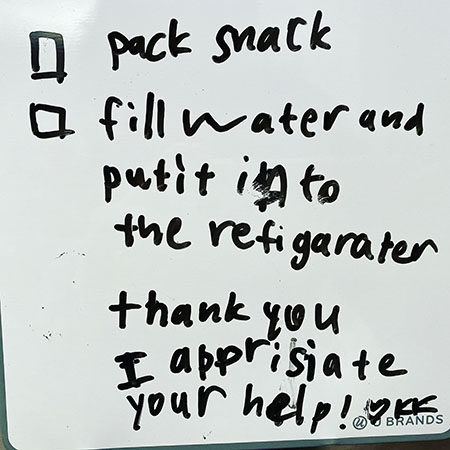 pack snack
fill water and
put it in to
the refigarater
thank you
I apprisiate
your help! ♡KK
U BRANDS